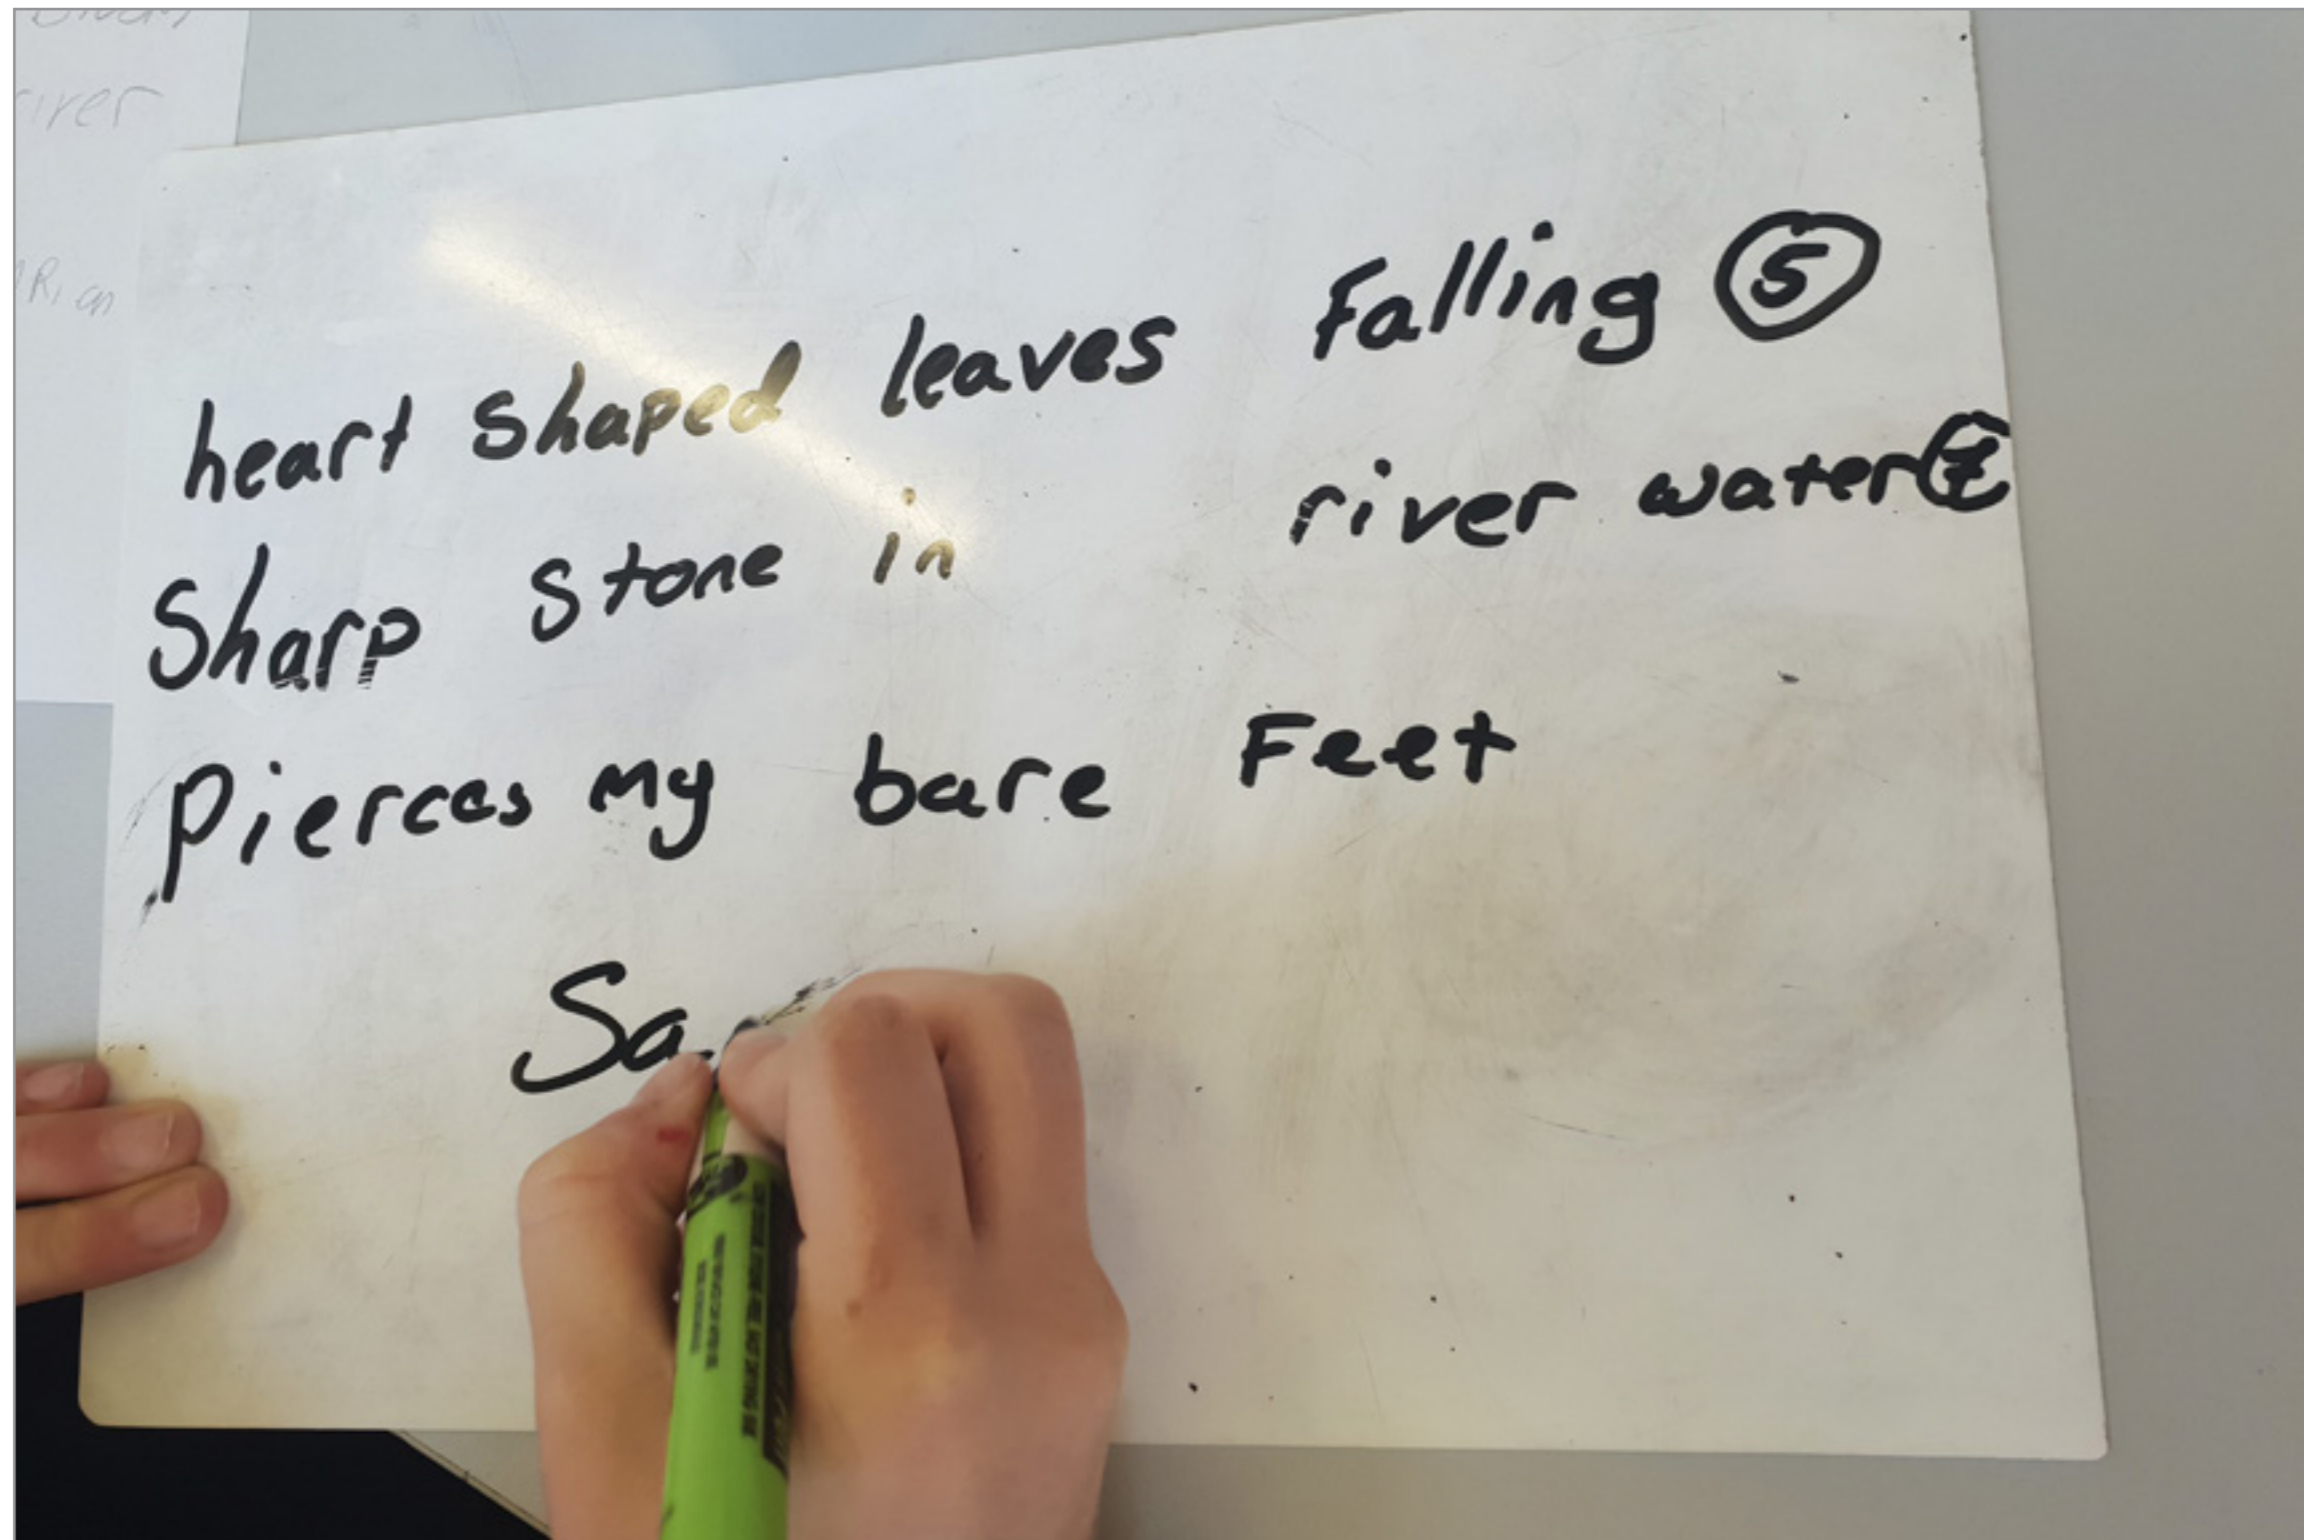 river
heart shaped leaves falling 5
Sharp stone in river water 7
Pierces my bare Feet
Sa